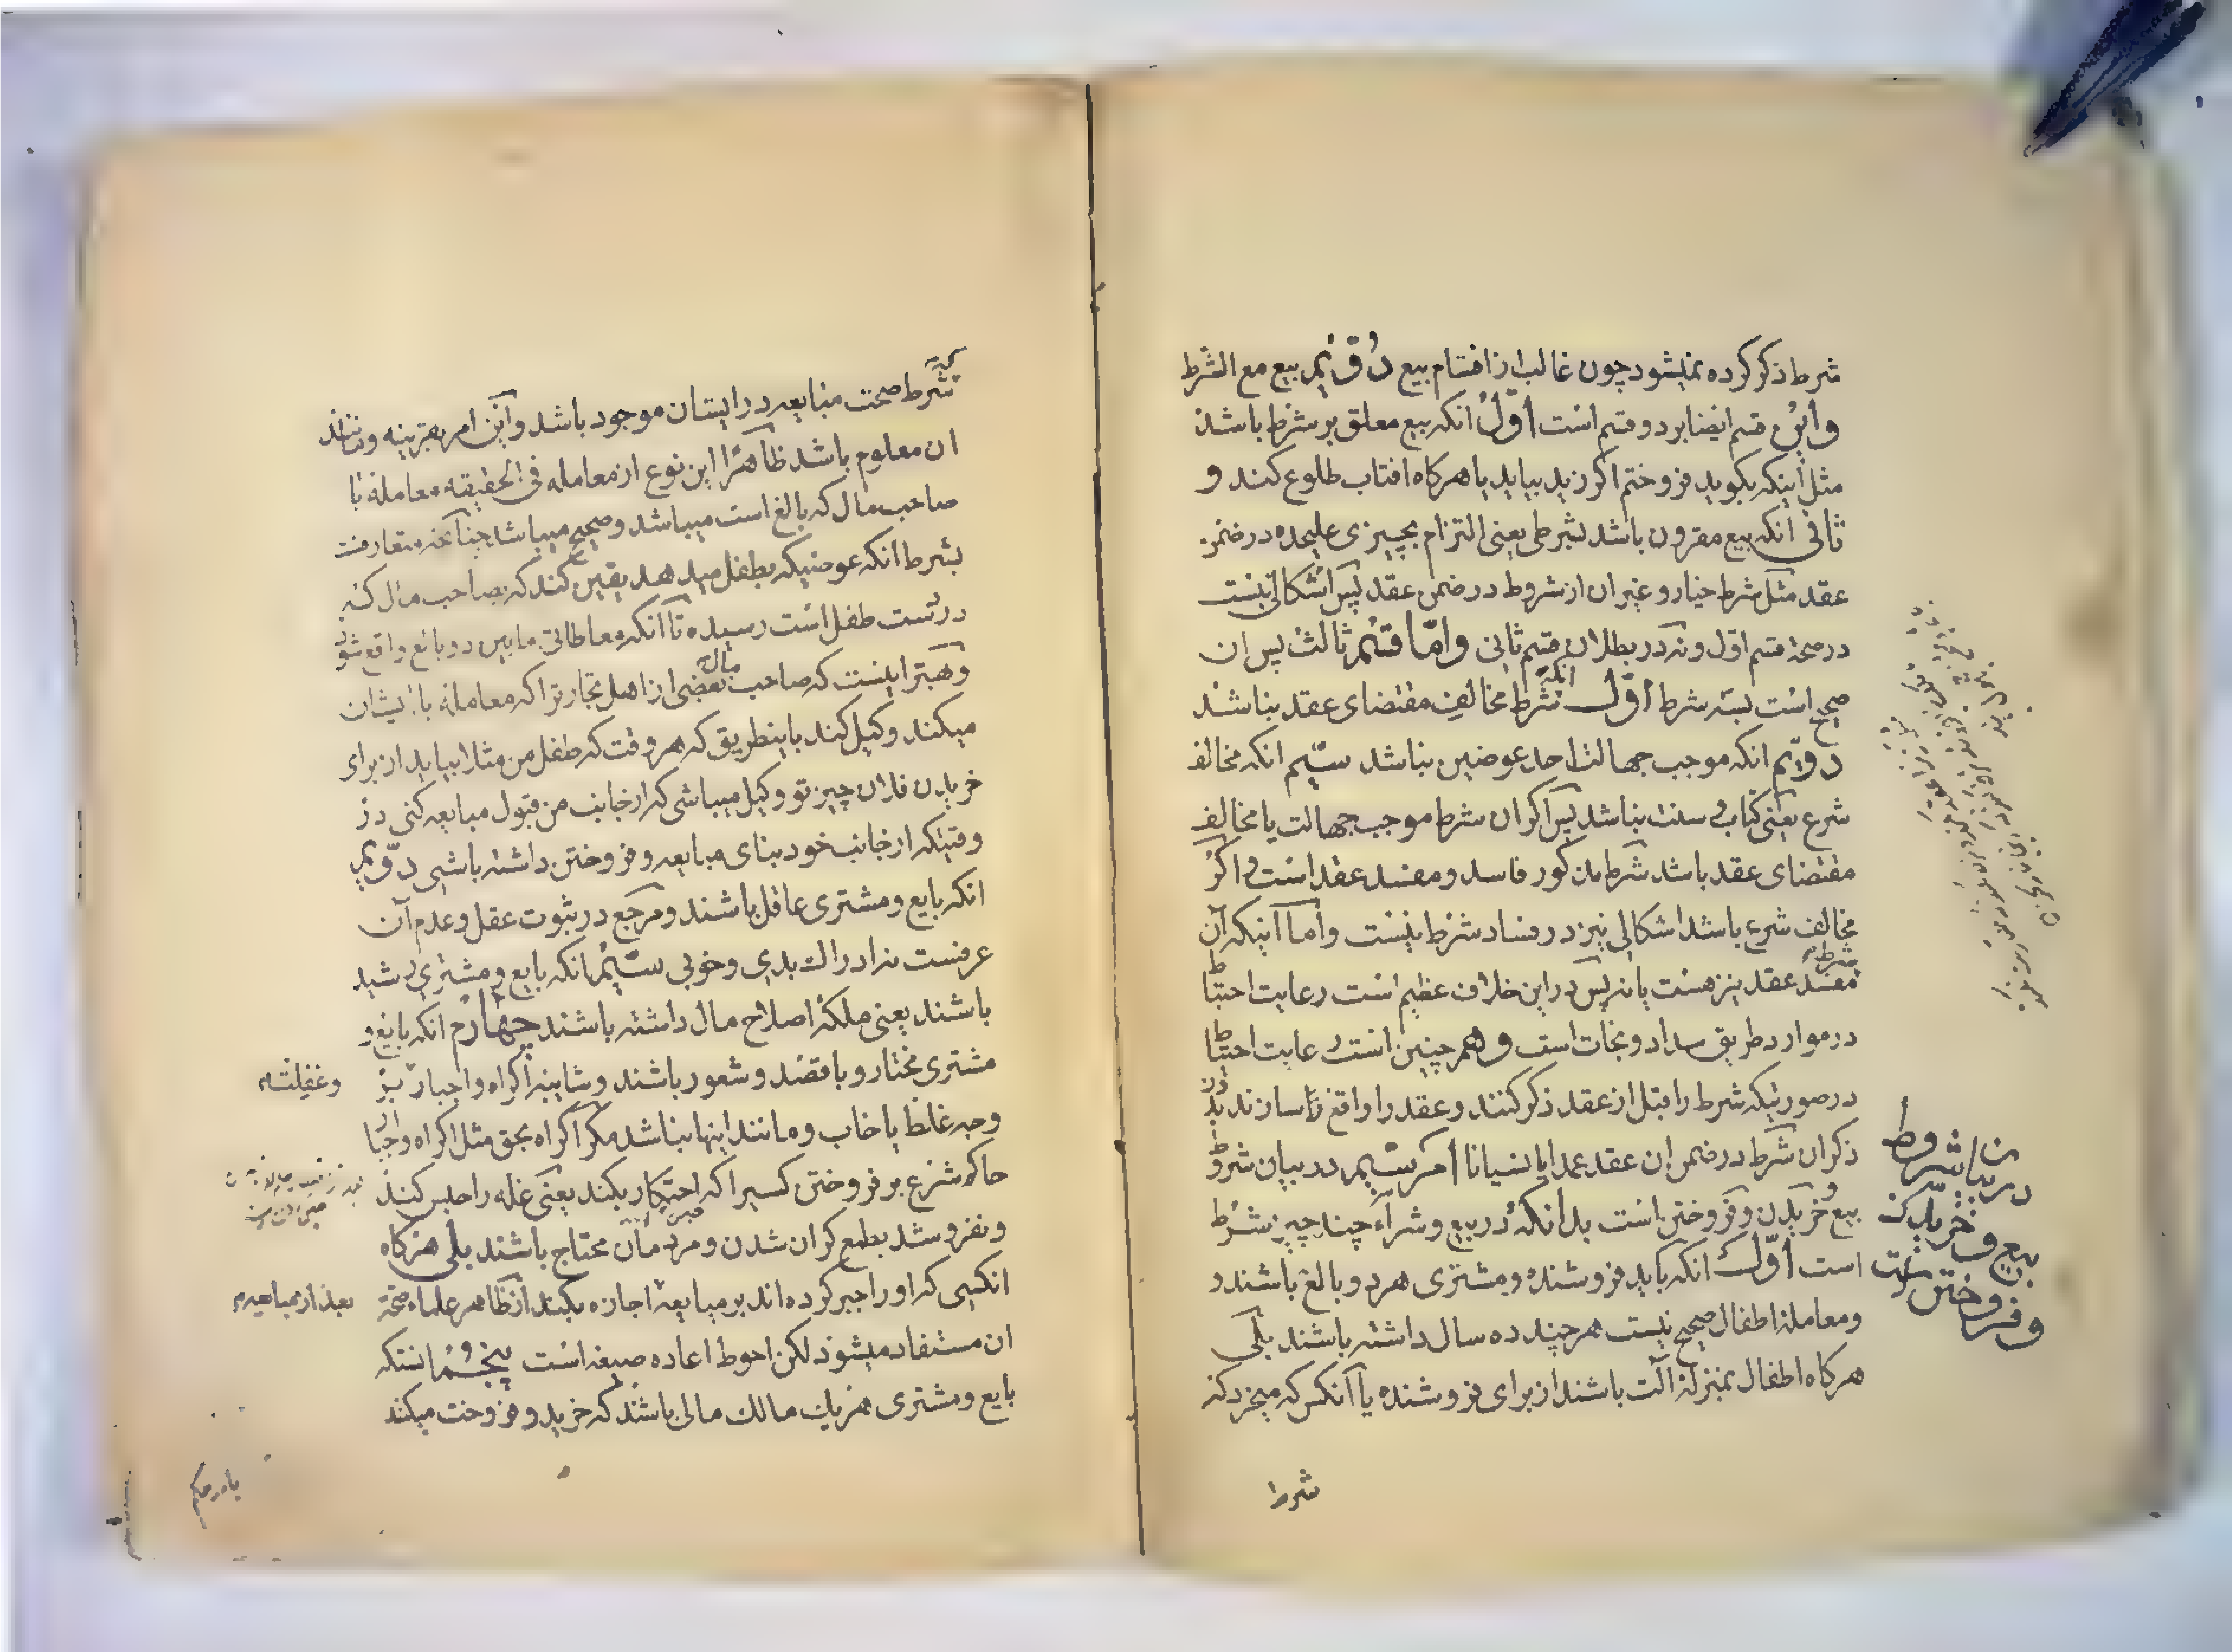 شرط ذکر کرده نمیشود چون غالب از اقسام بیع دوّیم بیع مع الشرط
واین قسم ایضا بر دو قسم است اوّل انکه بیع معلق بر شرط باشد
مثل اینکه بکوید فروختم اکر زید بیاید یا هرکاه افتاب طلوع کند و
ثانی انکه بیع مقرون باشد بشرطی یعنی التزام بچیزی علیحده در ضمن
عقد مثل شرط خیار و غیر ان از شروط در ضمن عقد پس اشکالی نیست
در صحة قسم اوّل و نه در بطلان قسم ثانی وامّا قسم ثالث پس ان
صحیح است بسه شرط اوّل انکه شرط مخالف مقتضای عقد نباشد
دوّیم انکه موجب جهالت احد عوضین نباشد سیّم انکه مخالف
شرع یعنی کتاب و سنت نباشد پس اکر ان شرط موجب جهالت یا مخالف
مقتضای عقد باشد شرط مذکور فاسد و مفسد عقد است و اکر
مخالف شرع باشد اشکالی نیز در فساد شرط نیست واما اینکه آن
شرط مفسد عقد نیز هست یا نه پس در این خلاف عظیم است رعایت احتیاط
در موارد طریق سداد و نجات است و همچنین است رعایت احتیاط
در صورتیکه شرط را قبل از عقد ذکر کنند و عقد را واقع سازند بدون
ذکر ان شرط در ضمن ان عقد عمدا یا نسیانا امر سیّم در بیان شروط
بیع و خریدن و فروختن است بدانکه در بیع و شراء چند چیز شرط
است اوّل انکه باید فروشنده و مشتری هر دو بالغ باشند و
ومعامله اطفال صحیح نیست هر چند ده سال داشته باشند بلی
هرکاه اطفال بمنزله آلت باشند از برای فروشنده یا آنکس که میخرد که
شرط
در بیان شروط
بیع و خریدن
و فروختن است
شرط صحت مبایعه در ایشان موجود باشد و این امر بقرینه و مانند
ان معلوم باشد ظاهرًا این نوع از معامله فی الحقیقه معامله با
صاحب مال که بالغ است میباشد و صحیح میباشد چنانکه متعارفست
بشرط انکه عوضیکه بطفل میدهد یقین کند که بصاحب مال که
در دست طفل است رسیده تا آنکه معاطاتی مابین دو بالغ واقع شود
و بهتر اینست که صاحب مال بعضی از اهل تجارت را که معامله با ایشان
میکند وکیل کند باینطریق که هر وقت که طفل من مثلا بیاید از برای
خریدن فلان چیز تو وکیل میباشی که از جانب من قبول مبایعه کنی در
وقتیکه از جانب خود بنای مبایعه و فروختن داشته باشی دوّیم
انکه بایع و مشتری عاقل باشند و مرجع در ثبوت عقل و عدم آن
عرفست نه ادراک بدی و خوبی سیّم انکه بایع و مشتری رشید
باشند یعنی ملکهٔ اصلاح مال داشته باشند چهارم انکه بایع و
مشتری مختار و با قصد و شعور باشند و شایبه اکراه و اجبار نیز
وغفلته
وجه غلط یا خاب و مانند اینها نباشد مکر اکراه بحق مثل اکراه و اجبار
حاکم شرع بر فروختن کسیرا که احتکار بکند یعنی غله را حبس کند
و نفروشد بطمع کران شدن و مردمان محتاج باشند بلی هرکاه
انکسی که او را جبر کرده اند بر مبایعه اجازه بکند از ظاهر علماء صحة
بعد از مبایعه
ان مستفاد میشود لکن احوط اعاده صیغه است پنجم انستکه
بایع و مشتری هر یک مالک مالی باشند که خرید و فروخت میکند